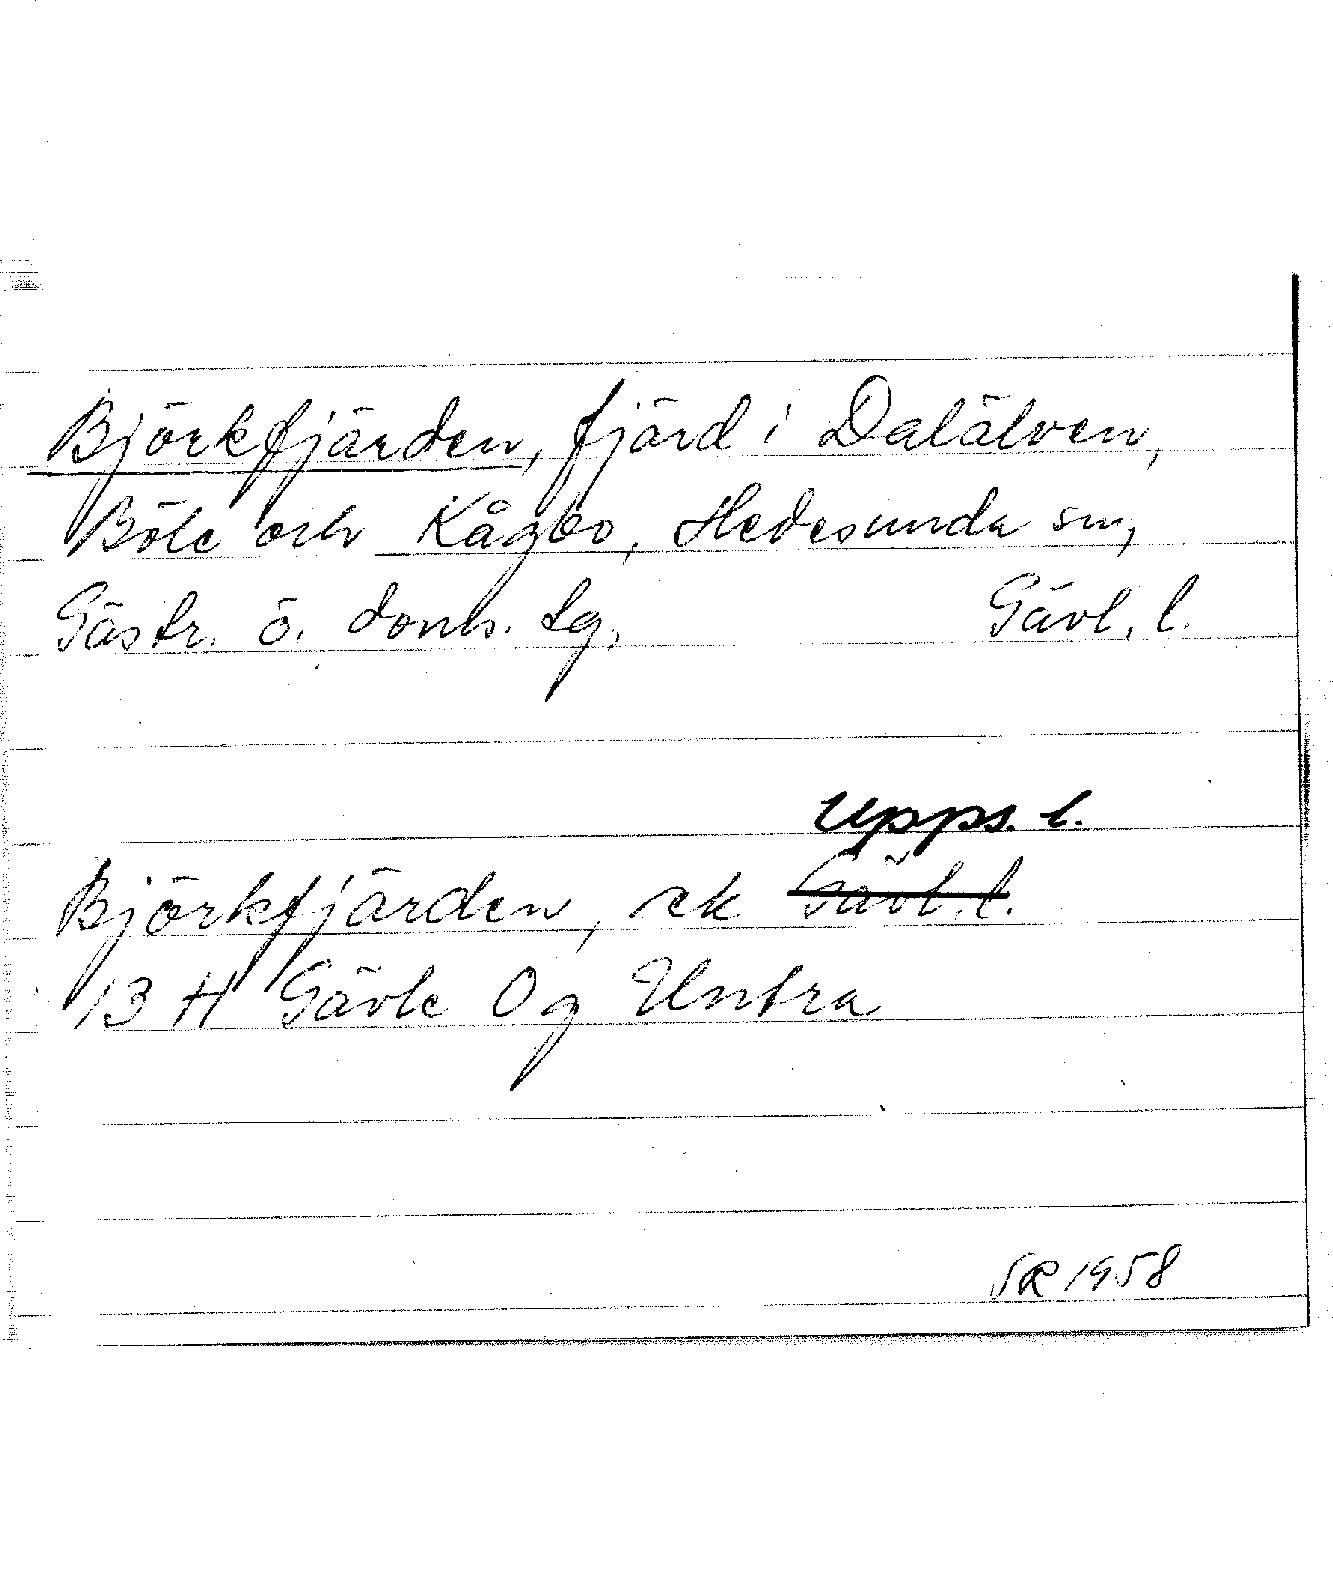 Björkfjärden, fjärd i Dalälven,
Böle och Kågbo, Hedesunda sn,
Gästr. ö. doms. tg. Gävl. l.
Upps. l.
Björkfjärden, ek Gävl. l.
13 H Gävle 0g Untra
SR 1958